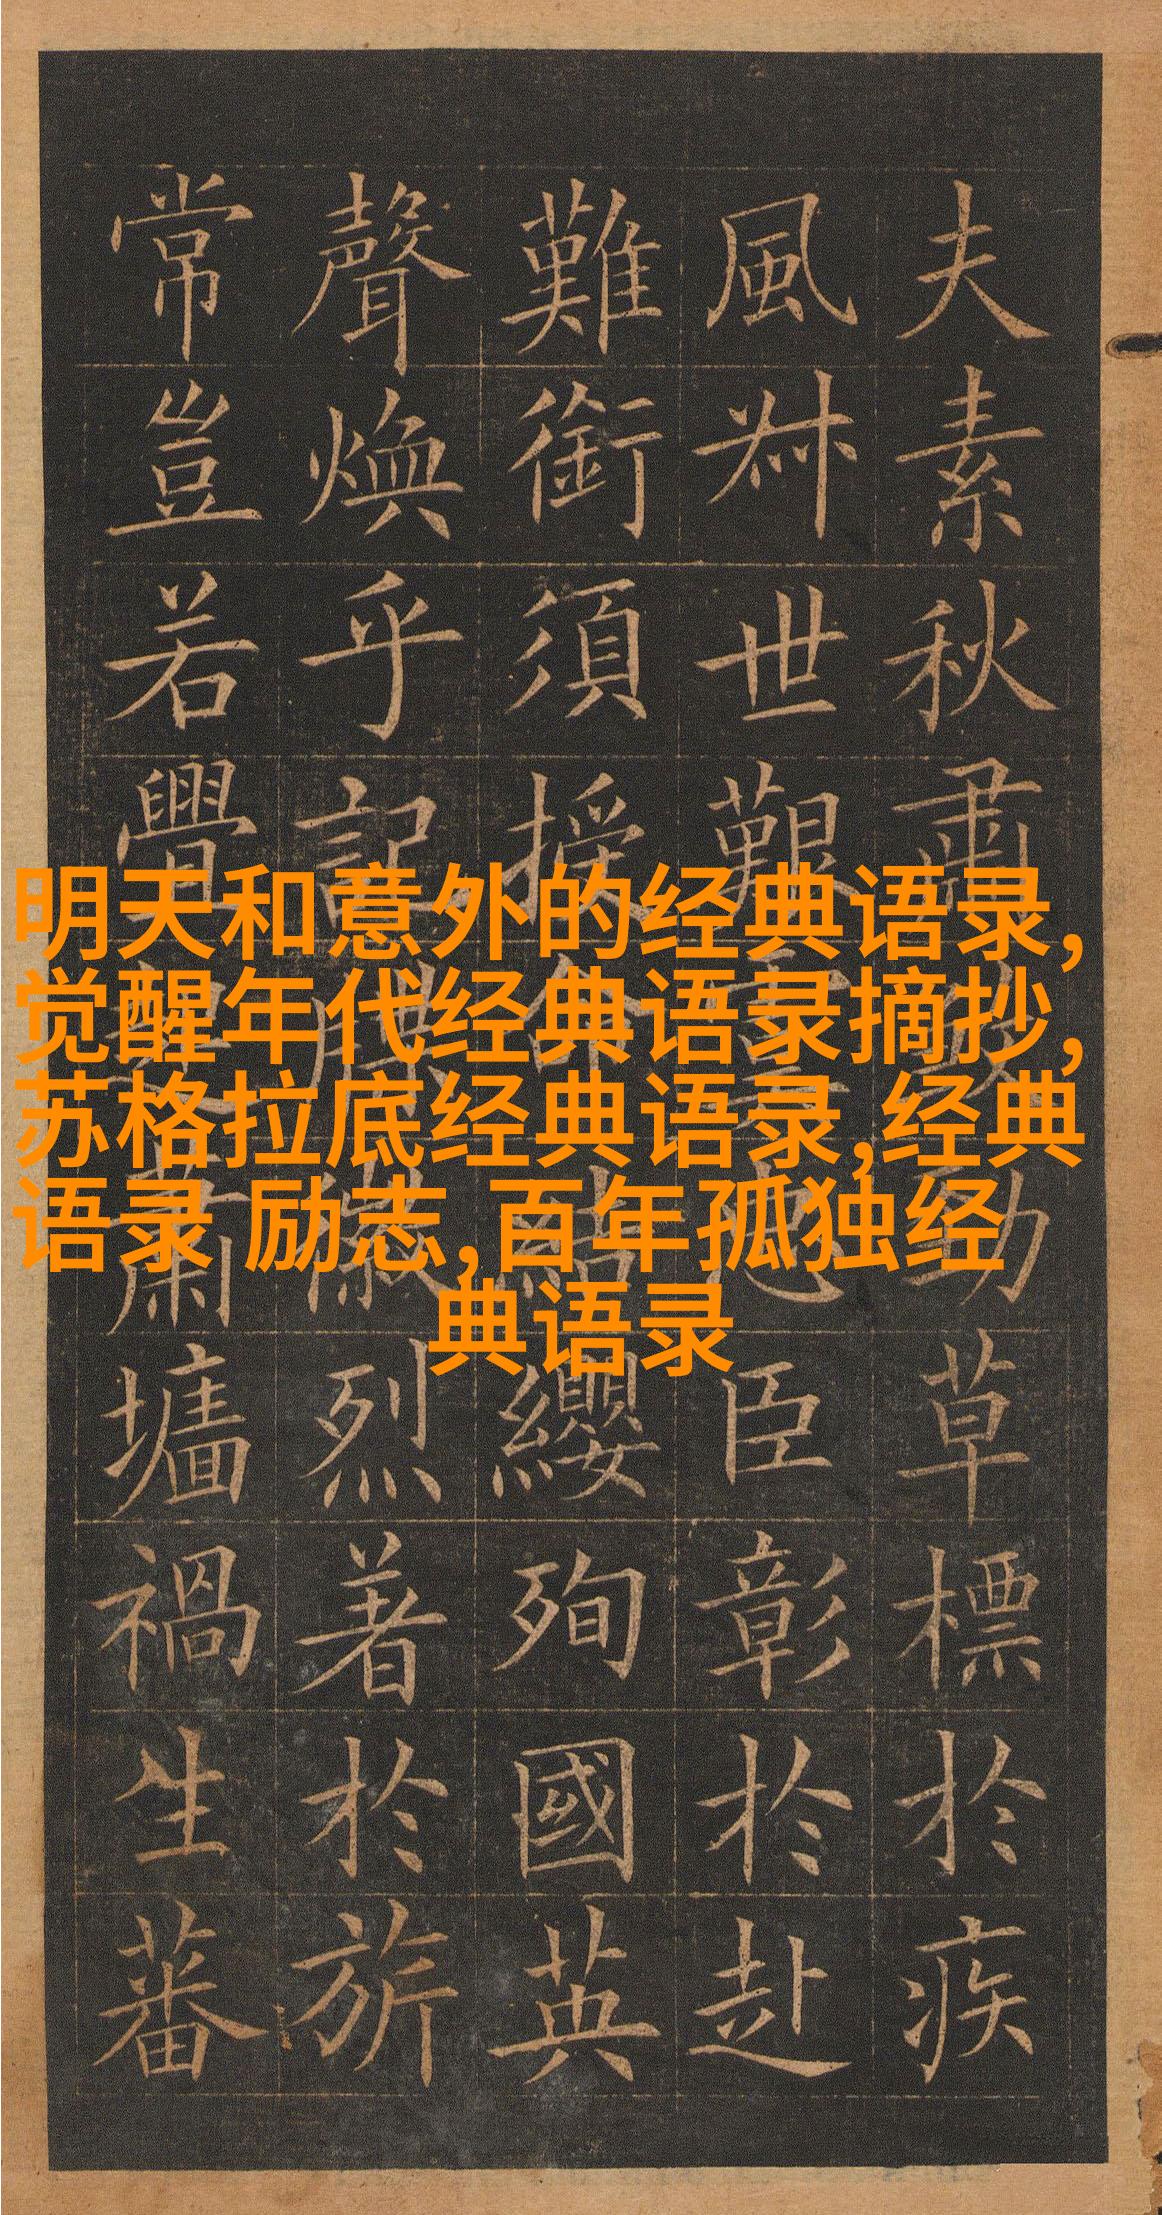 夫素秋肅煞勁草標於疾
風叔世艱虞忠臣彰於赴
難銜須授命結纓殉國英
聲煥乎記牒徽烈著於旂
常豈若釁起蕭墻禍生蕃
明天和意外的经典语录,
觉醒年代经典语录摘抄,
苏格拉底经典语录,经典
语录 励志,百年孤独经
典语录